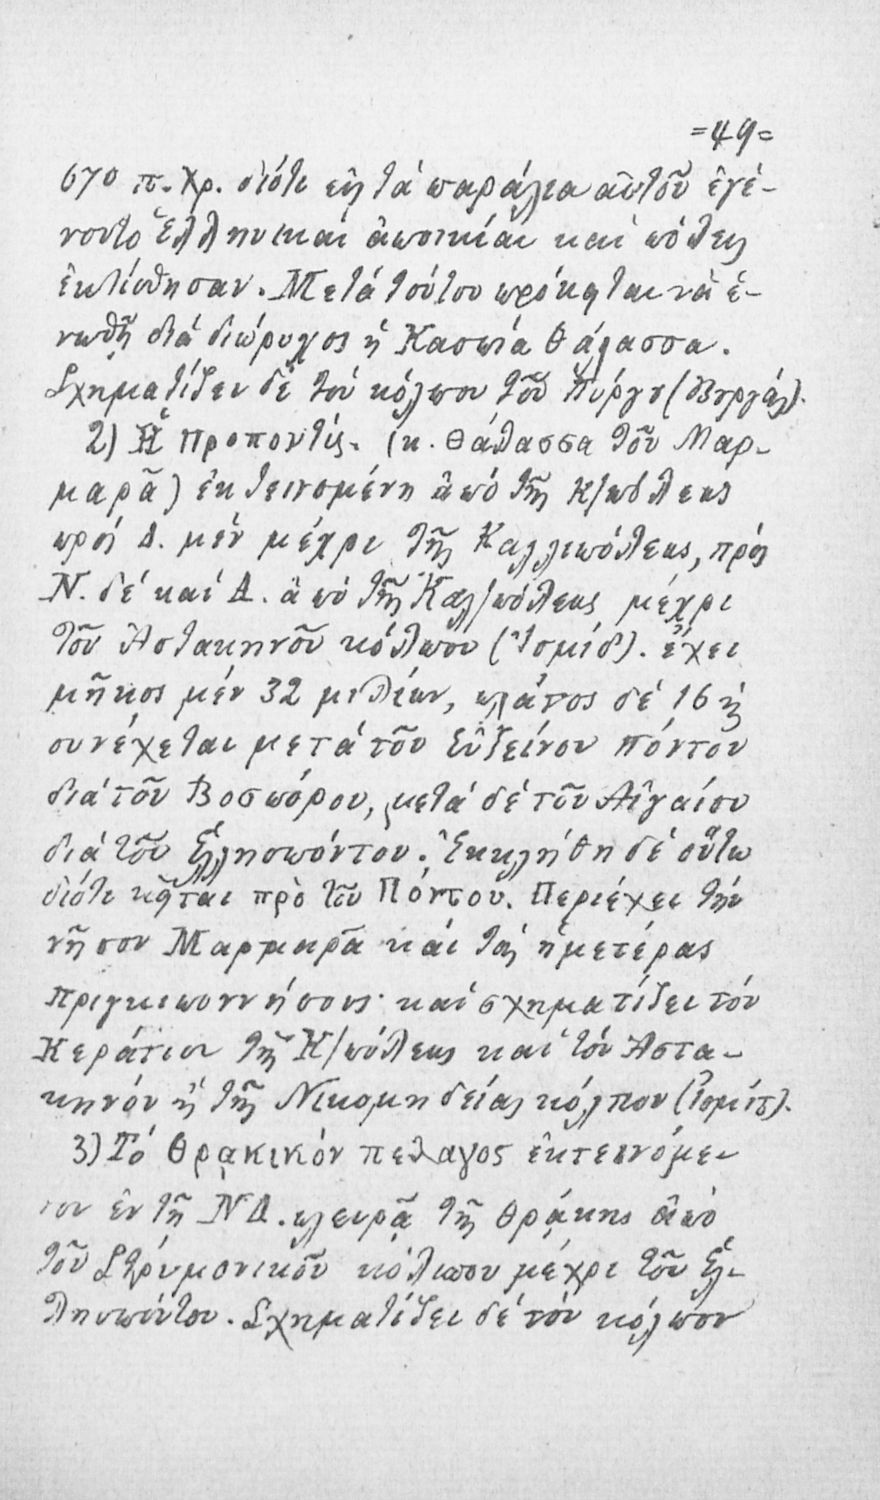 =49=
670 π. Χρ. διότι εἰς τὰ παράλια αὐτοῦ ἐγέ-
νοντο Ἑλληνικαὶ ἀποικίαι καὶ πόλεις
ἐκτίσθησαν. Μετὰ τούτου πρόκειται νὰ ἑ-
νωθῇ διὰ διώρυγος ἡ Κασπία θάλασσα.
Σχηματίζει δὲ τὸν κόλπον τοῦ Πύργου (Βουργάς).
2) Ἡ Προποντὶς. (κ. θάλασσα τοῦ Μαρ-
μαρᾶ) ἐκτεινομένη ἀπὸ τῆς Κ/πόλεως
πρὸς Δ. μὲν μέχρι τῆς Καλλιπόλεως, πρὸς
Ν. δὲ καὶ Δ. ἀπὸ τῆς Καλ/πόλεως μέχρι
τοῦ Ἀστακηνοῦ κόλπου (Ἰσμίδ). ἔχει
μῆκος μὲν 32 μιλίων, πλάτος δὲ 16 ϗ
συνέχεται μετὰ τοῦ Εὐξείνου πόντου
διὰ τοῦ Βοσπόρου, μετὰ δὲ τοῦ Αἰγαίου
διὰ τοῦ Ἑλλησπόντου. Ἐκκλήθη δὲ οὕτω
διότι κεῖται πρὸ τοῦ Πόντου. Περιέχει τὴν
νῆσον Μαρμαρᾶ καὶ τὰς ἡμετέρας
πριγκιποννήσους καὶ σχηματίζει τὸν
Κεράτιον τῆς Κ/πόλεως καὶ τὸν Ἀστα-
κηνὸν ἢ τῆς Νικομηδείας κόλπον (Ἰσμίτ).
3) Τὸ Θρᾳκικὸν πέλαγος ἐκτεινόμε-
νον ἐν τῇ ΝΔ. πλευρᾷ τῆς Θρᾴκης ἀπὸ
τοῦ Στρυμονικοῦ κόλπου μέχρι τοῦ Ἑλ-
λησπόντου. Σχηματίζει δὲ τὸν κόλπον